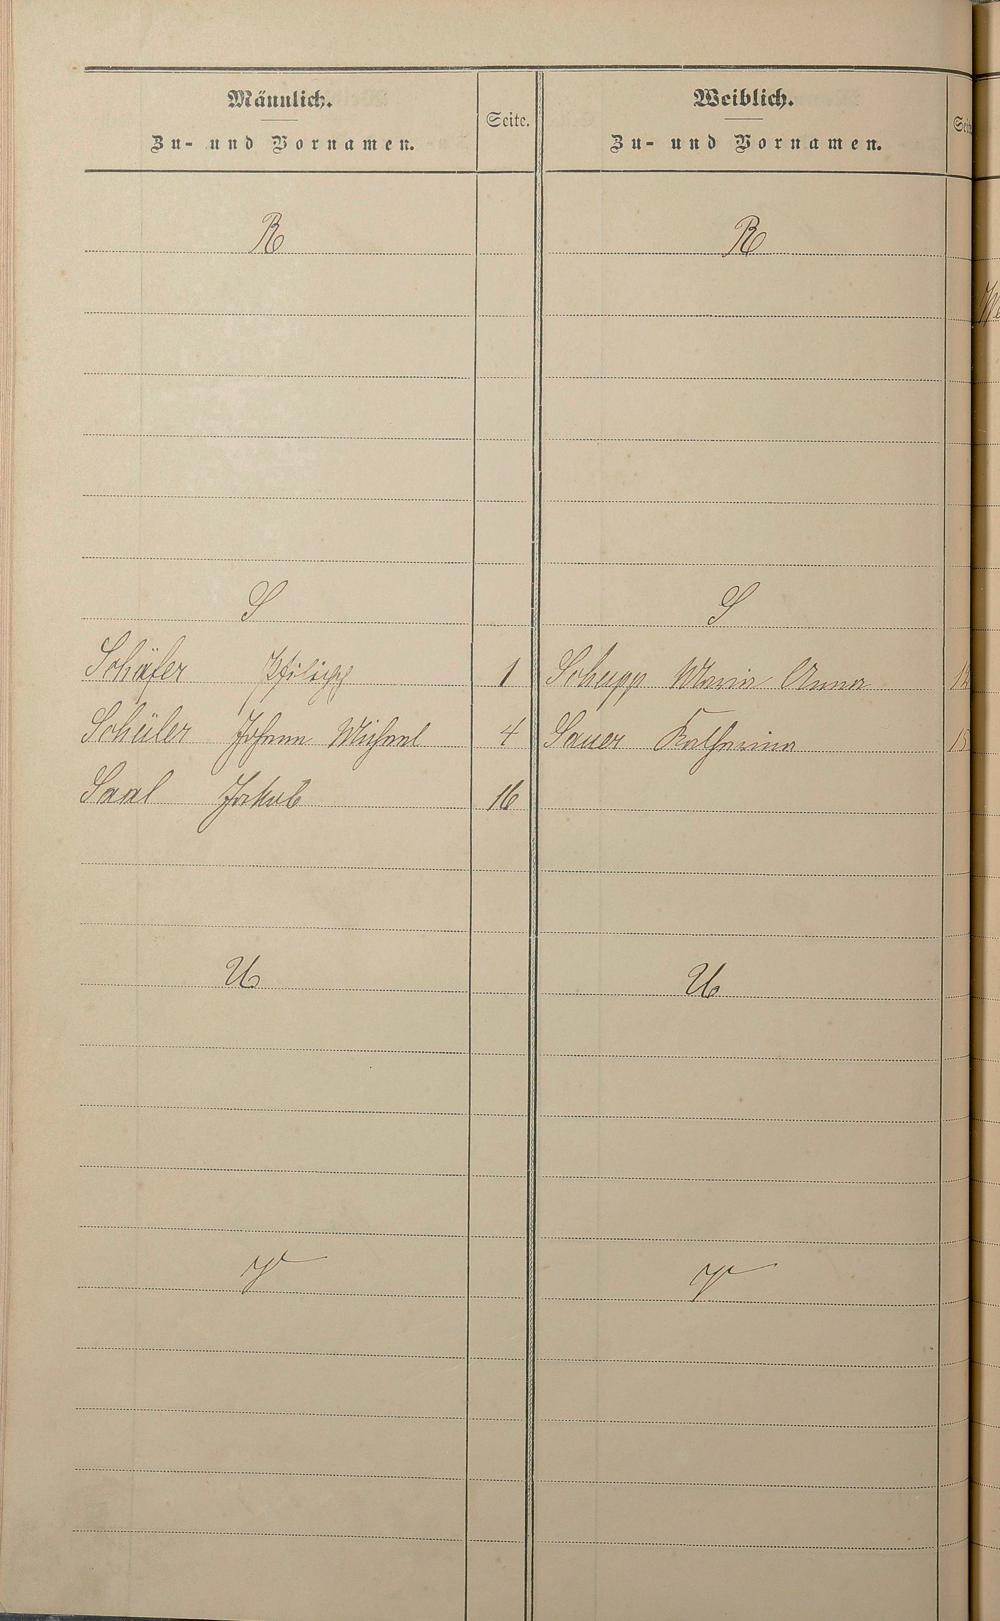 Männlich.
Zu- und Vornamen.
Seite.
Weiblich.
Zu- und Vornamen.
R
R
S
S
Schäfer Philipp 1
Schupp Maria Anna
Schüler Johann Michael 4
Sauer Katharina
Saal Jakob 16
U
U
V
V